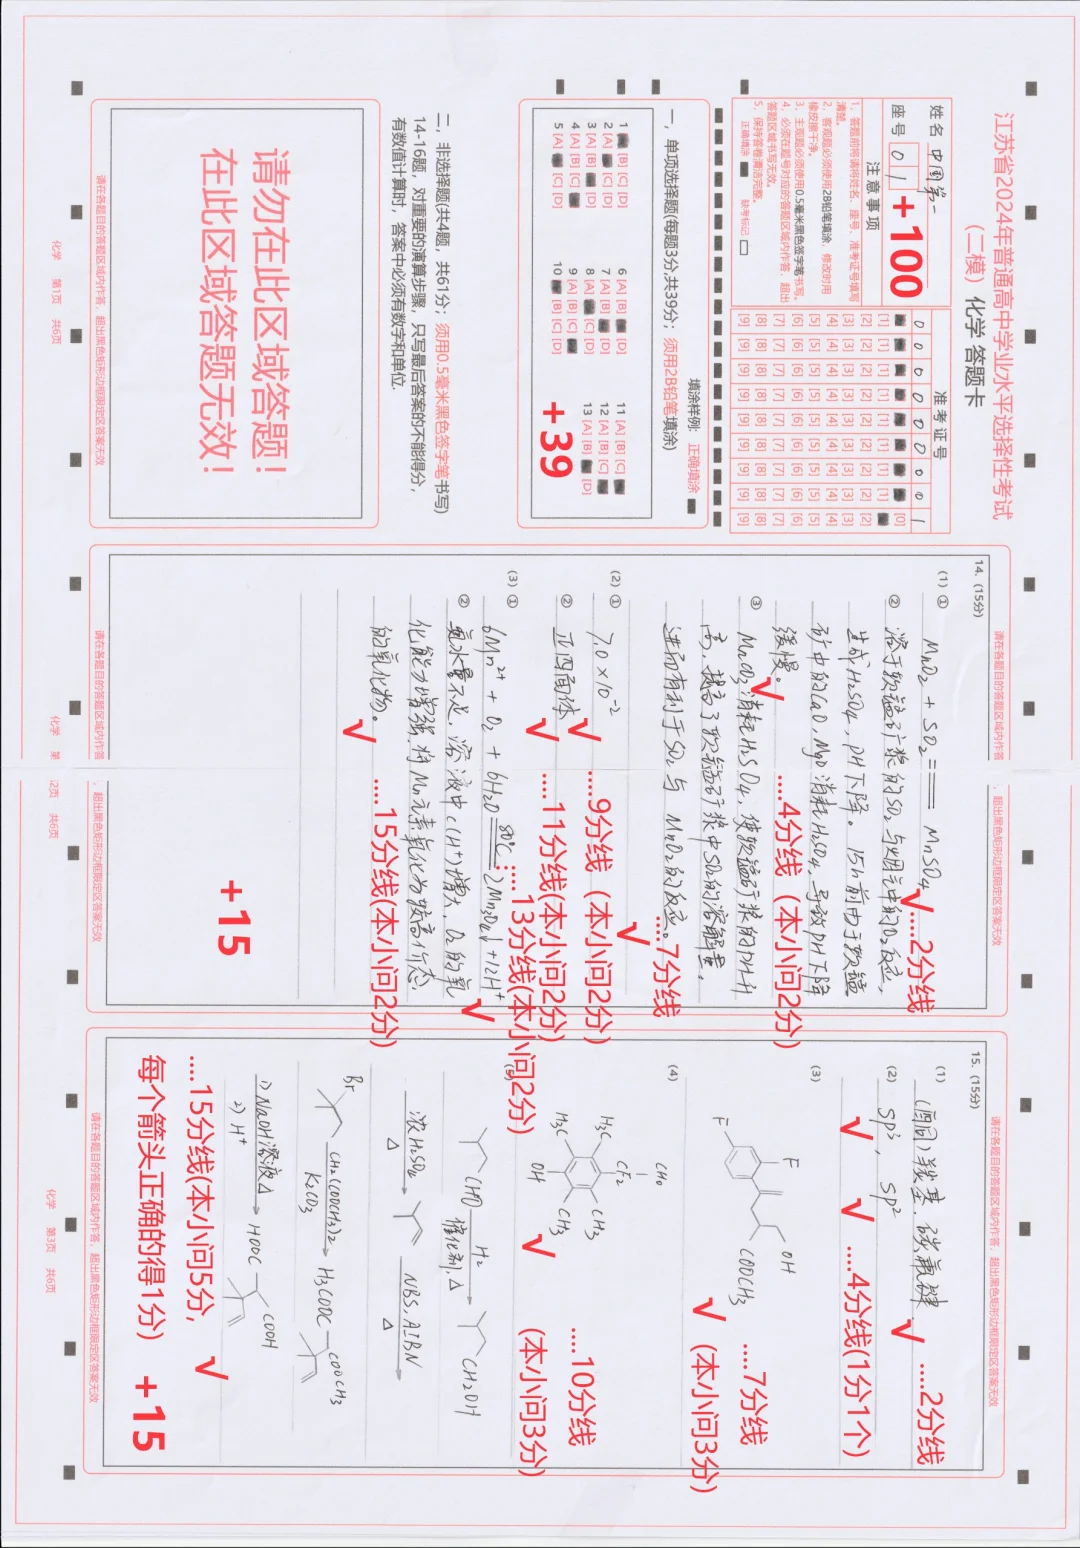 江苏省2024年普通高中学业水平选择性考试
（二模）化学 答题卡
姓名 中国第一
座号 0 1
+100
准考证号
0 0 0 0 0 0 0 1
注意事项
1、答题前将将姓名、座号、准考证号填写
清楚。
2、客观题必须使用2B铅笔填涂，修改时用
橡皮擦干净。
3、主观题必须使用0.5毫米黑色签字笔书写。
4、必须在题号对应的答题区域内作答，超出
答题区域书写无效。
5、保持答卷清洁完整。
正确填涂 缺考标记
填涂样例: 正确填涂
一、单项选择题(每题3分,共39分；须用2B铅笔填涂)
1 [B] [C] [D]
2 [A] [C] [D]
3 [A] [B] [D]
4 [A] [B] [C]
5 [A] [C] [D]
6 [A] [B] [D]
7 [A] [B] [D]
8 [A] [C] [D]
9 [A] [B] [C]
10 [B] [C] [D]
11 [A] [B] [C]
12 [A] [B] [C]
13 [A] [B] [D]
+39
二、非选择题(共4题，共61分；须用0.5毫米黑色签字笔书写)
14-16题，对重要的演算步骤，只写最后答案的不能得分，
有数值计算时，答案中必须有数字和单位.
请勿在此区域答题！
在此区域答题无效！
请在各题目的答题区域内作答，超出黑色矩形边框限定区答案无效
化学 第1页 共6页
请在各题目的答题区域内作答，超出黑色矩形边框限定区答案无效
14. (15分)
(1) ① MnO2 + SO2 ═══ MnSO4 ....2分线
② 溶于软锰矿浆的SO2与烟气中的O2反应，
生成H2SO4，pH下降。15h前由于软锰
矿中的CaO、MgO消耗H2SO4，导致pH下降
缓慢。 ....4分线（本小问2分）
③ MnCO3消耗H2SO4，使软锰矿浆的pH升
高，提高了软锰矿浆中SO2的溶解量，
进而有利于SO2与MnO2的反应。 ....7分线
(2) ① 7.0×10-2 ....9分线（本小问2分）
② 正四面体 ....11分线(本小问2分)
(3) ① 6Mn2+ + O2 + 6H2O ═80℃═ 2Mn3O4↓+12H+ ....13分线(本小问2分)
② 氨水量不足，溶液中c(H+)增大，O2的氧
化能力增强，将Mn元素氧化为较高价态
的氧化物。 ....15分线(本小问2分)
+15
请在各题目的答题区域内作答，超出黑色矩形边框限定区答案无效
化学 第2页 共6页
请在各题目的答题区域内作答，超出黑色矩形边框限定区答案无效
15. (15分)
(1) (酮)羰基、碳氟键 ....2分线
(2) sp3、sp2 ....4分线(1分1个)
(3) F F OH COOCH3 ....7分线
(本小问3分)
(4) CHO
CF2
H3C CH3
H3C CH3
OH ....10分线
(本小问3分)
(5) CHO H2 催化剂,△ CH2OH
浓H2SO4 △ NBS, AIBN △
Br CH2(COOCH3)2 K2CO3 H3COOC COOCH3
1) NaOH溶液,△ 2) H+ HOOC COOH
....15分线(本小问5分,
每个箭头正确的得1分)
+15
请在各题目的答题区域内作答，超出黑色矩形边框限定区答案无效
化学 第3页 共6页